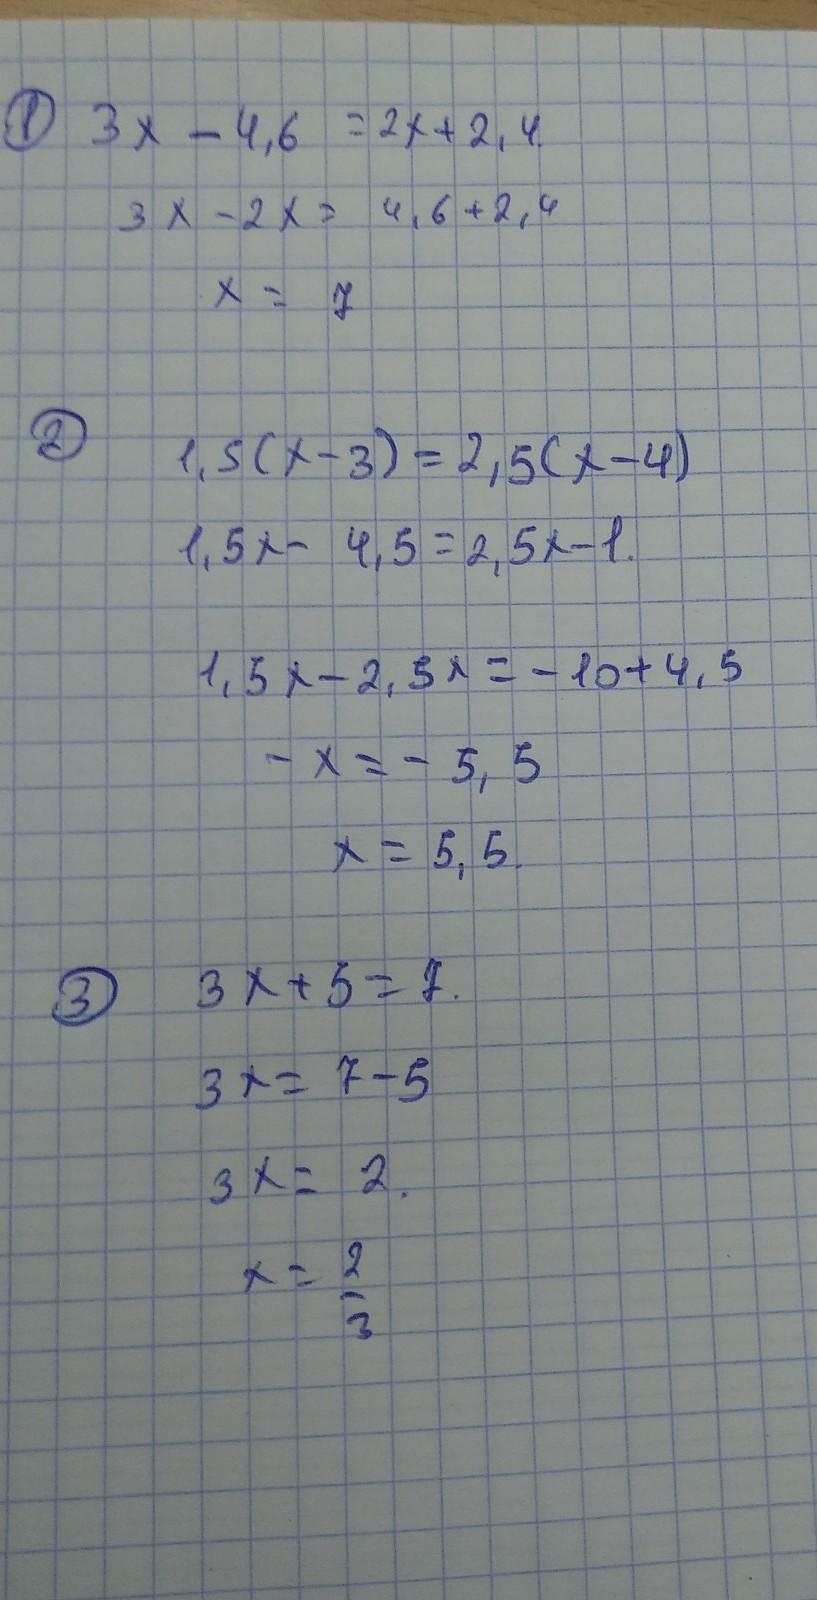 ① 3x - 4,6 = 2x + 2,4.
3x - 2x = 4,6 + 2,4
x = 7
② 1,5(x - 3) = 2,5(x - 4)
1,5x - 4,5 = 2,5x - 1.
1,5x - 2,5x = - 10 + 4,5
- x = - 5,5
x = 5,5.
③ 3x + 5 = 7.
3x = 7 - 5
3x = 2.
x = 2/3